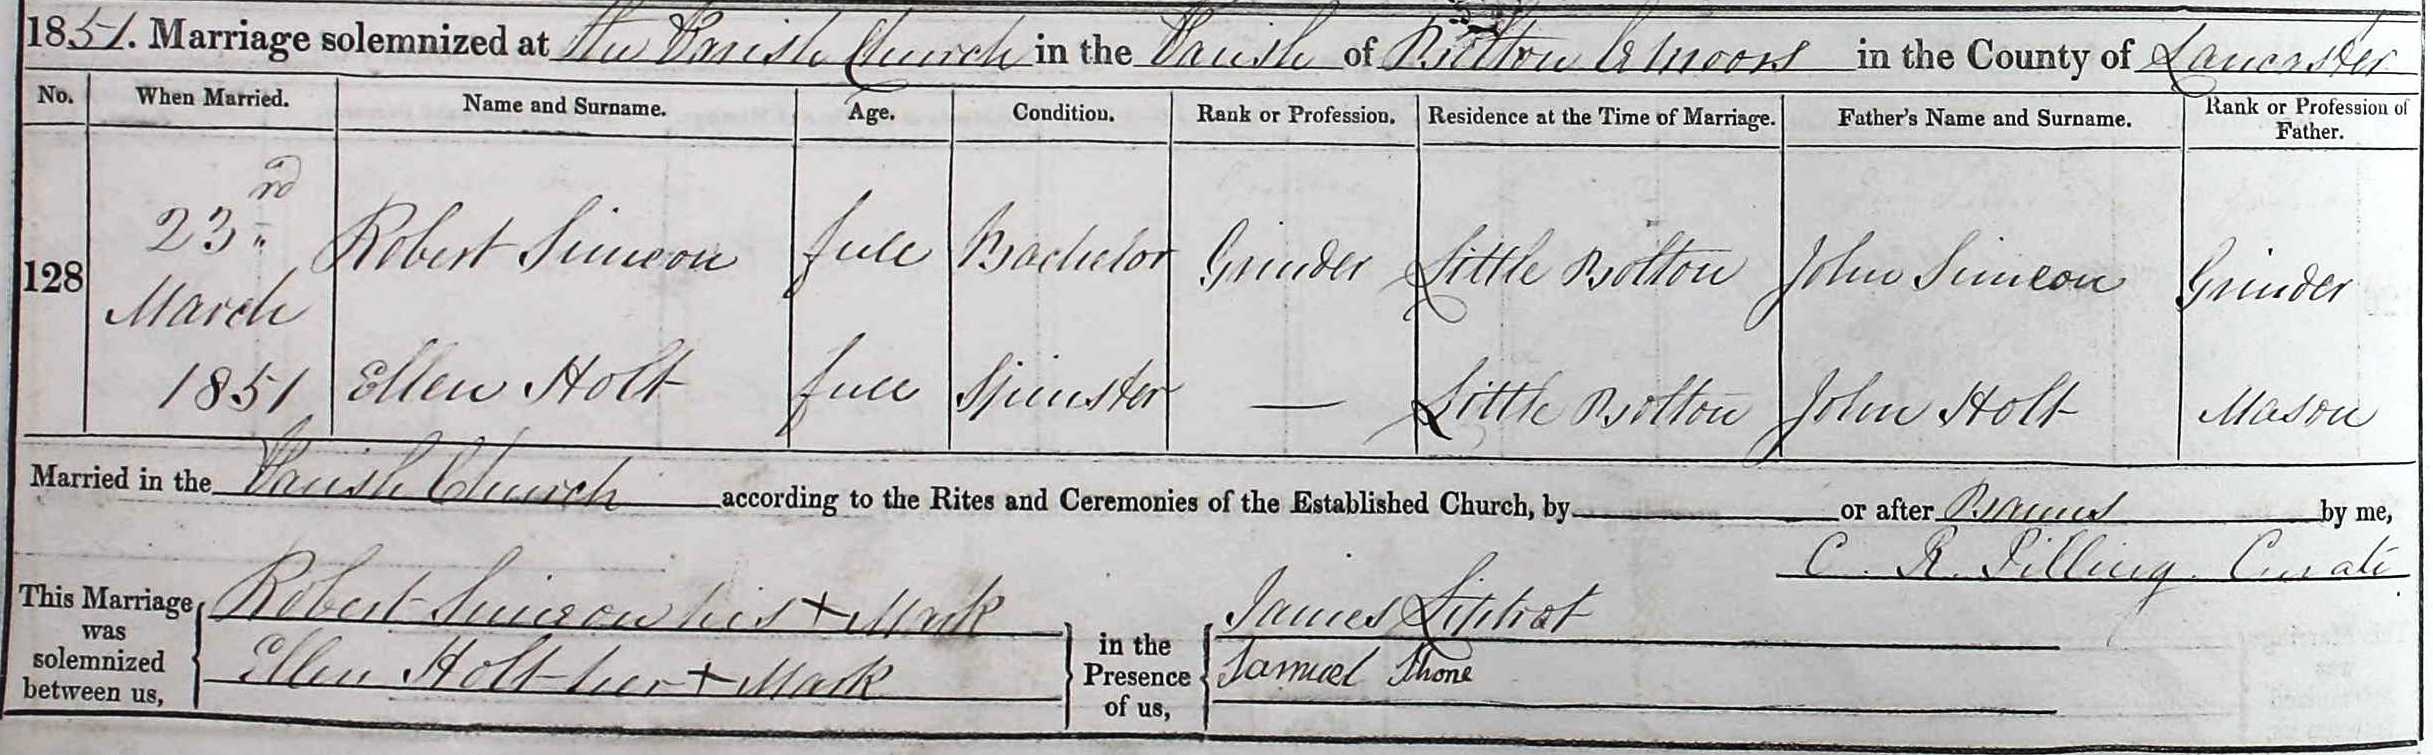 1851. Marriage solemnized at the Parish Church in the Parish of Bolton le Moors in the County of Lancaster
No. When Married. Name and Surname. Age. Condition. Rank or Profession. Residence at the Time of Marriage. Father's Name and Surname. Rank or Profession of Father.
128 23rd March 1851 Robert Simeon full Bachelor Grinder Little Bolton John Simeon Grinder
Ellen Holt full Spinster — Little Bolton John Holt Mason
Married in the Parish Church according to the Rites and Ceremonies of the Established Church, by or after Banns by me,
C. R. Pilling Curate
This Marriage was solemnized between us, Robert Simeon his + Mark in the Presence of us, James
Ellen Holt her + Mark Samuel Thone